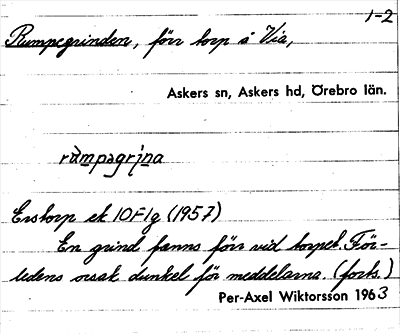 1-2
Rumpegrinden, förr torp å Via,
Askers sn, Askers hd, Örebro län.
rùmpəgrịna
Erstorp ek 10F1g (1957)
En grind fanns förr vid torpet. För-
ledens orsak dunkel för meddelarna. (forts.)
Per-Axel Wiktorsson 1963